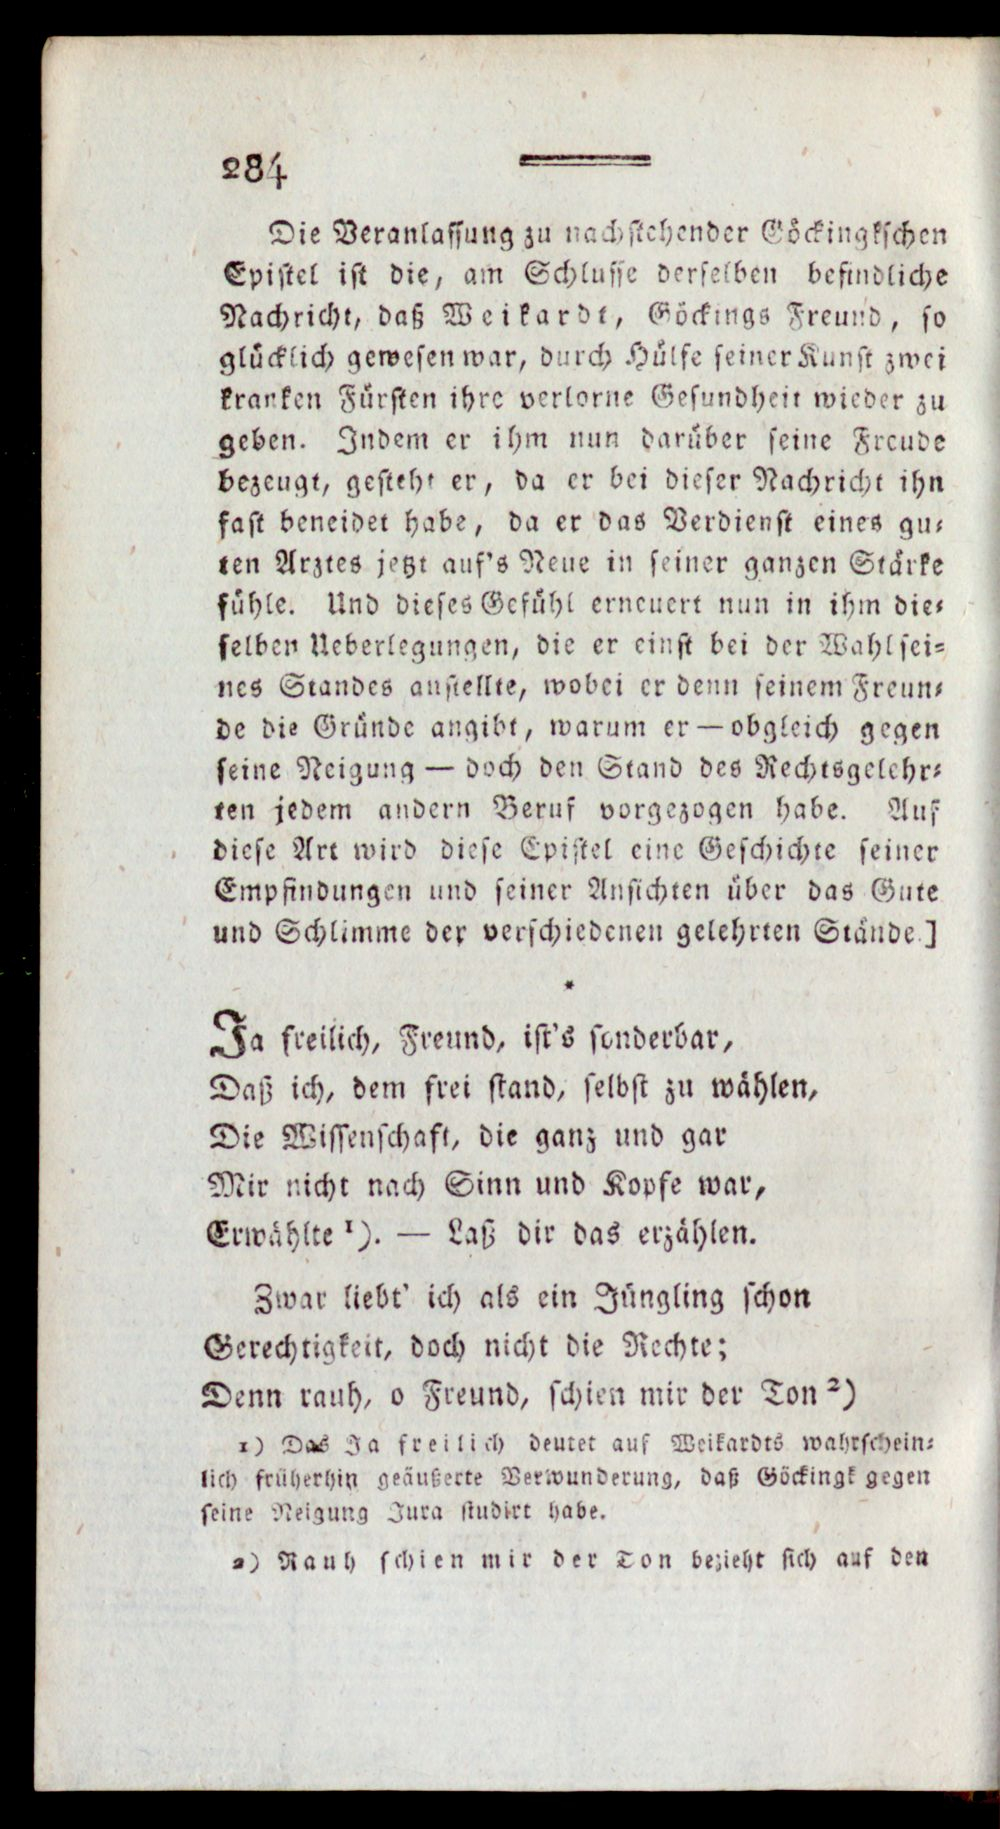 284
Die Veranlassung zu nachstehender Göckingkschen
Epistel ist die, am Schlusse derselben befindliche
Nachricht, daß Weikardt, Göckings Freund, so
glücklich gewesen war, durch Hülfe seiner Kunst zwei
kranken Fürsten ihre verlorne Gesundheit wieder zu
geben. Indem er ihm nun darüber seine Freude
bezeugt, gesteht er, da er bei dieser Nachricht ihn
fast beneidet habe, da er das Verdienst eines gu-
ten Arztes jetzt auf's Neue in seiner ganzen Stärke
fühle. Und dieses Gefühl erneuert nun in ihm die-
selben Ueberlegungen, die er einst bei der Wahl sei-
nes Standes anstellte, wobei er denn seinem Freun-
de die Gründe angibt, warum er — obgleich gegen
seine Neigung — doch den Stand des Rechtsgelehr-
ten jedem andern Beruf vorgezogen habe. Auf
diese Art wird diese Epistel eine Geschichte seiner
Empfindungen und seiner Ansichten über das Gute
und Schlimme der verschiedenen gelehrten Stände.]
*
Ja freilich, Freund, ist's sonderbar,
Daß ich, dem frei stand, selbst zu wählen,
Die Wissenschaft, die ganz und gar
Mir nicht nach Sinn und Kopfe war,
Erwählte 1). — Laß dir das erzählen.
Zwar liebt' ich als ein Jüngling schon
Gerechtigkeit, doch nicht die Rechte;
Denn rauh, o Freund, schien mir der Ton 2)
1) Das Ja freilich deutet auf Weikardts wahrschein-
lich früherhin geäußerte Verwunderung, daß Göckingk gegen
seine Neigung Jura studirt habe.
2) Rauh schien mir der Ton bezieht sich auf den